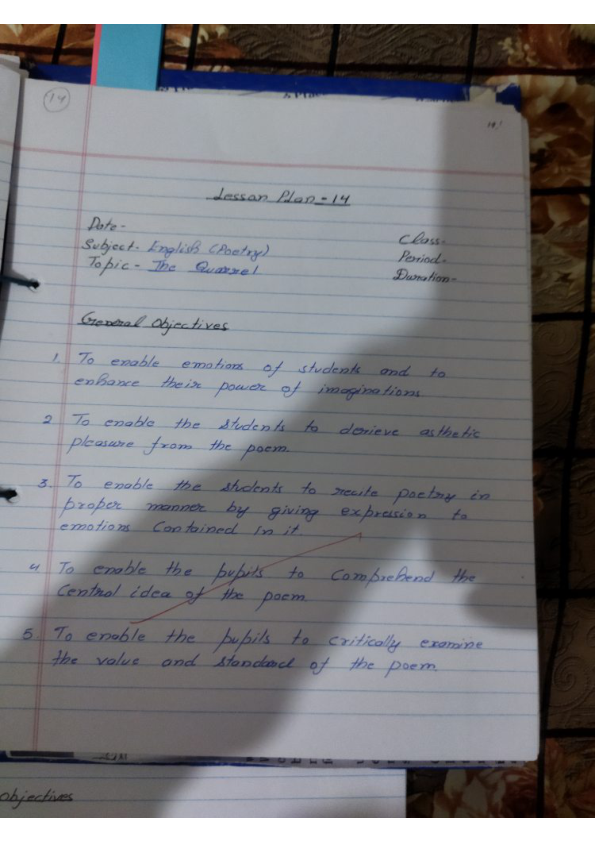 14
Lesson Plan - 14
Date -
Class -
Subject - English (Poetry)
Period -
Topic - The Quarrel
Duration -
General Objectives
1. To enable emotions of students and to
enhance their power of imaginations
2. To enable the students to derieve asthetic
pleasure from the poem.
3. To enable the students to recite poetry in
proper manner by giving expression to
emotions Contained in it.
4. To enable the pupils to Comprehend the
Central idea of the poem.
5. To enable the pupils to critically examine
the value and standard of the poem.
objectives